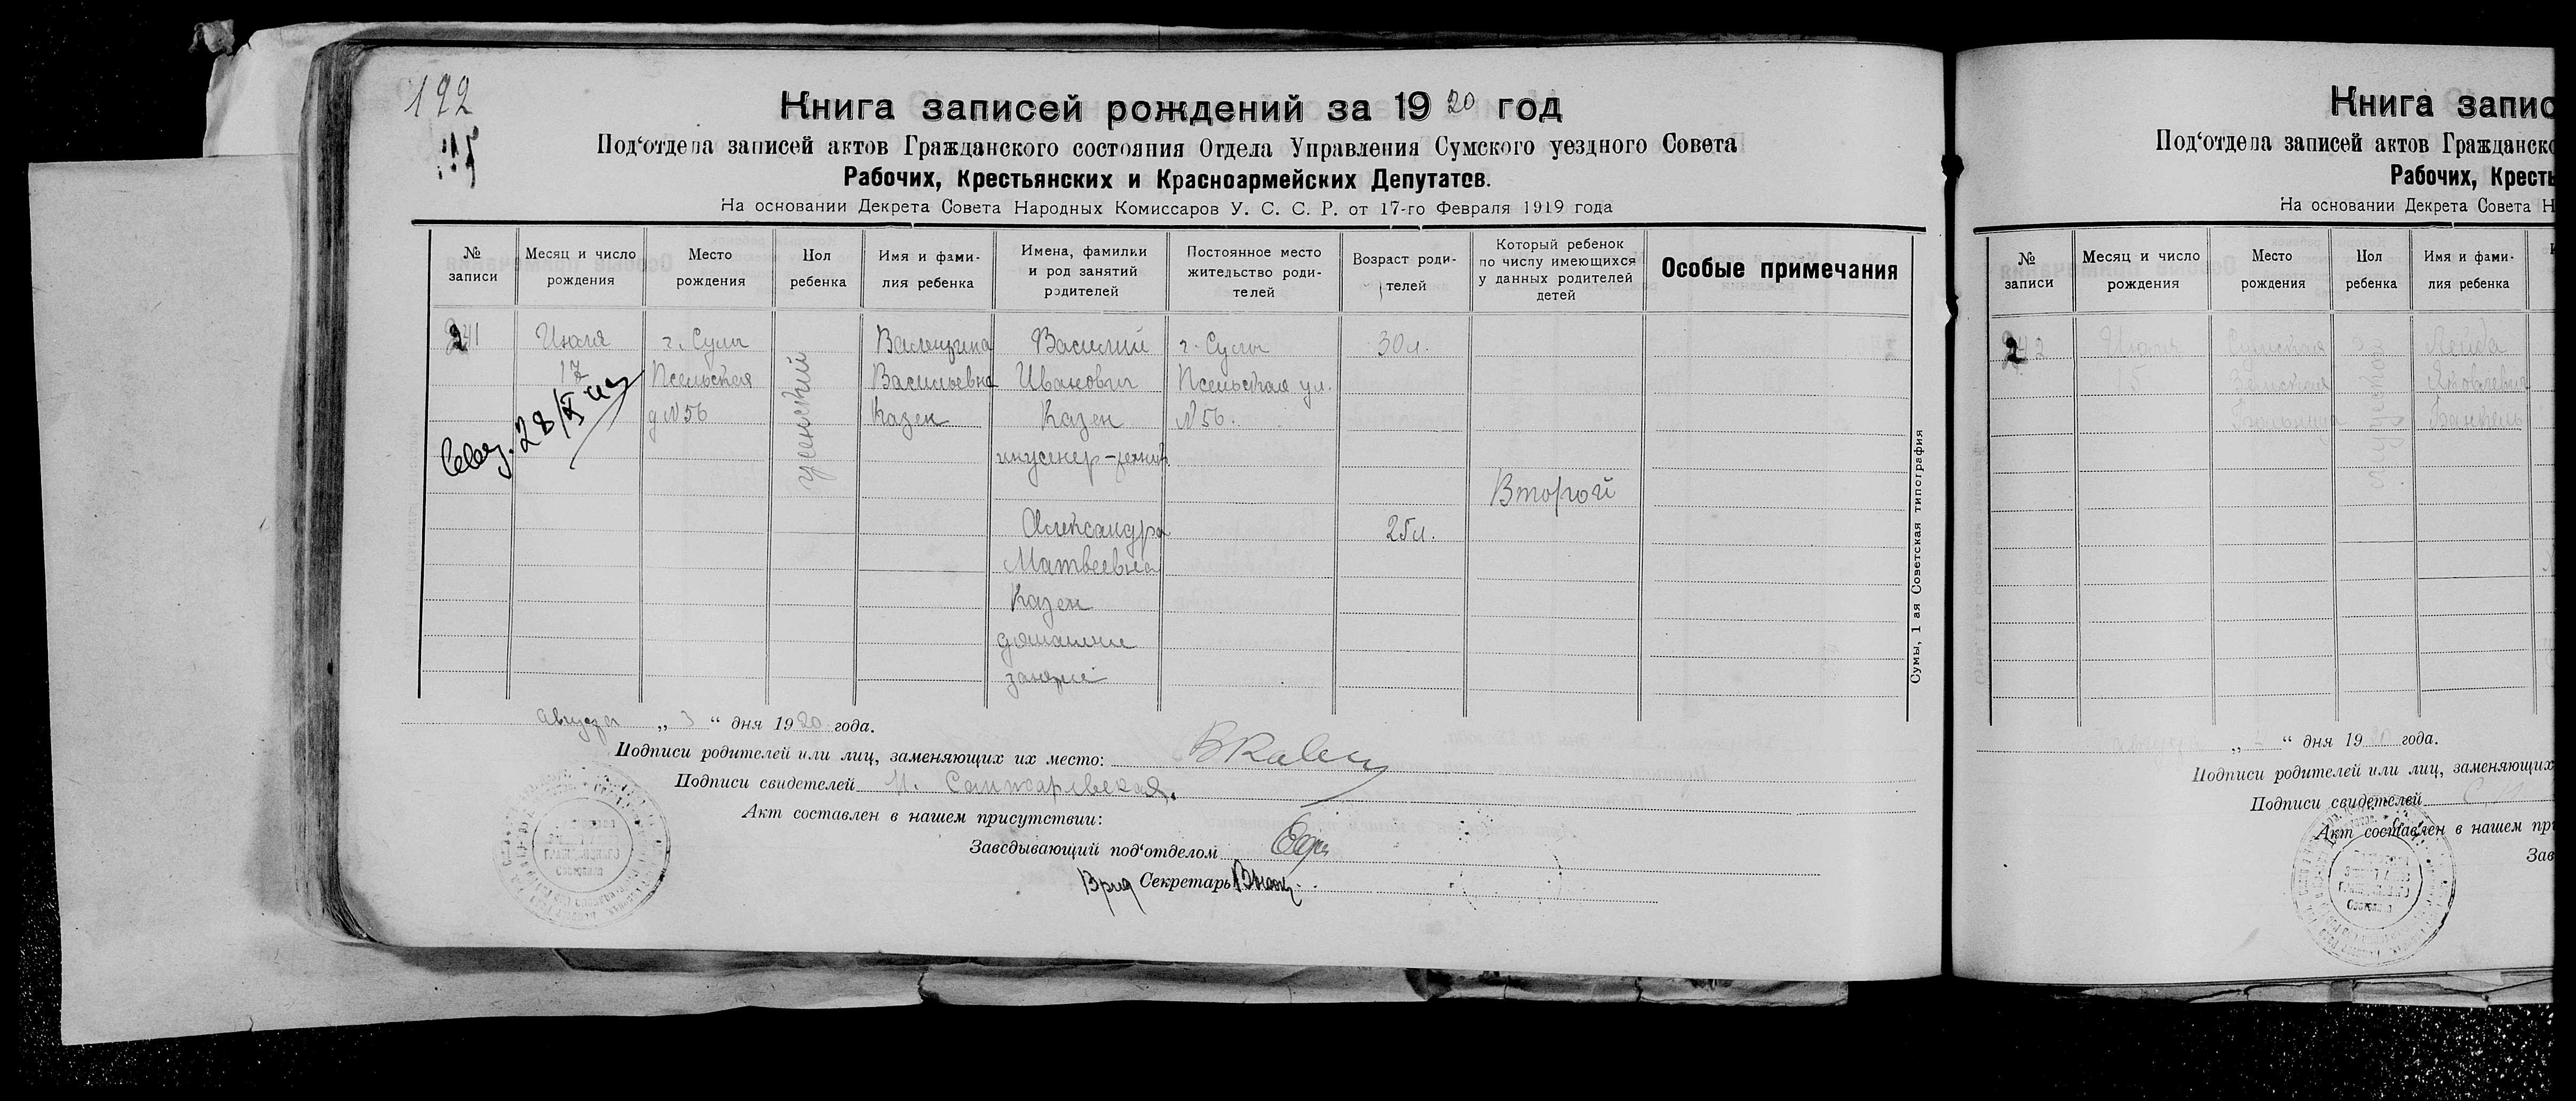 192
Книга записей рождений за 1920 год
Под‘отдела записей актов Гражданского состояния Отдела Управления Сумского уездного Совета
Рабочих, Крестьянских и Красноармейских Депутатов.
На основании Декрета Совета Народных Комиссаров У. С. С. Р. от 17-го Февраля 1919 года
№ записи
Месяц и число рождения
Место рождения
Пол ребенка
Имя и фами-
лия ребенка
Имена, фамилии
и род занятий
родителей
Постоянное место
жительство роди-
телей
Возраст роди-
телей
Который ребенок
по числу имеющихся
у данных родителей
детей
Особые примечания
241
Июля
17
г. Сумы
Псельская
д №56
женский
Валентина
Васильевна
Казен
Василий
Иванович
Казен
инженер-техник
Александра
Матвеевна
Казен
домашние
занятие
г. Сумы
Псельская ул.
№56.
30л.
25л.
Второй
28/X
Сумы, 1 ая Советская типография
августа „ 3 “ дня 1920 года.
Подписи родителей или лиц, заменяющих их место:
Подписи свидетелей
Акт составлен в нашем присутствии:
Заведывающий под‘отделом
Врид Секретарь
Книга запис
Под‘отдела записей актов Гражданско
Рабочих, Кресть
На основании Декрета Совета Н
№ записи
Месяц и число рождения
Место рождения
Пол ребенка
Имя и фами-
лия ребенка
242
Июля
15
Сумская
Земская
Больница
августа „ 4 “ дня 1920 года.
Подписи родителей или лиц, заменяющих
Подписи свидетелей
Акт составлен в нашем пр
Зав